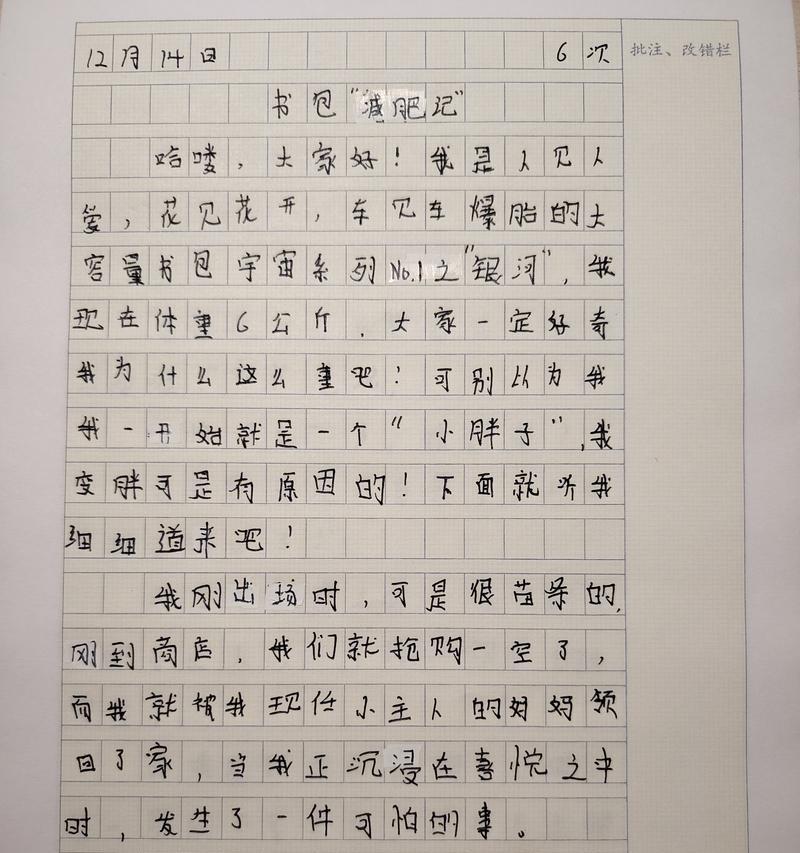 12月14日 6次 批注、改错栏
书包“减肥记”
哈喽，大家好！我是人见人
爱，花见花开，车见车爆胎的大
容量书包宇宙系列No.1之“银河”，我
现在体重6公斤．大家一定好奇
我为什么这么重吧！可别以为我
我一开始就是一个“小胖子”，我
变胖可是有原因的！下面就听我
细细道来吧！
我刚出场时，可是很苗条的，
刚到商店，我们就抢购一空了，
而我就被我现任小主人的妈妈领
回了家，当我正沉浸在喜悦之中
时，发生了一件可怕的事。